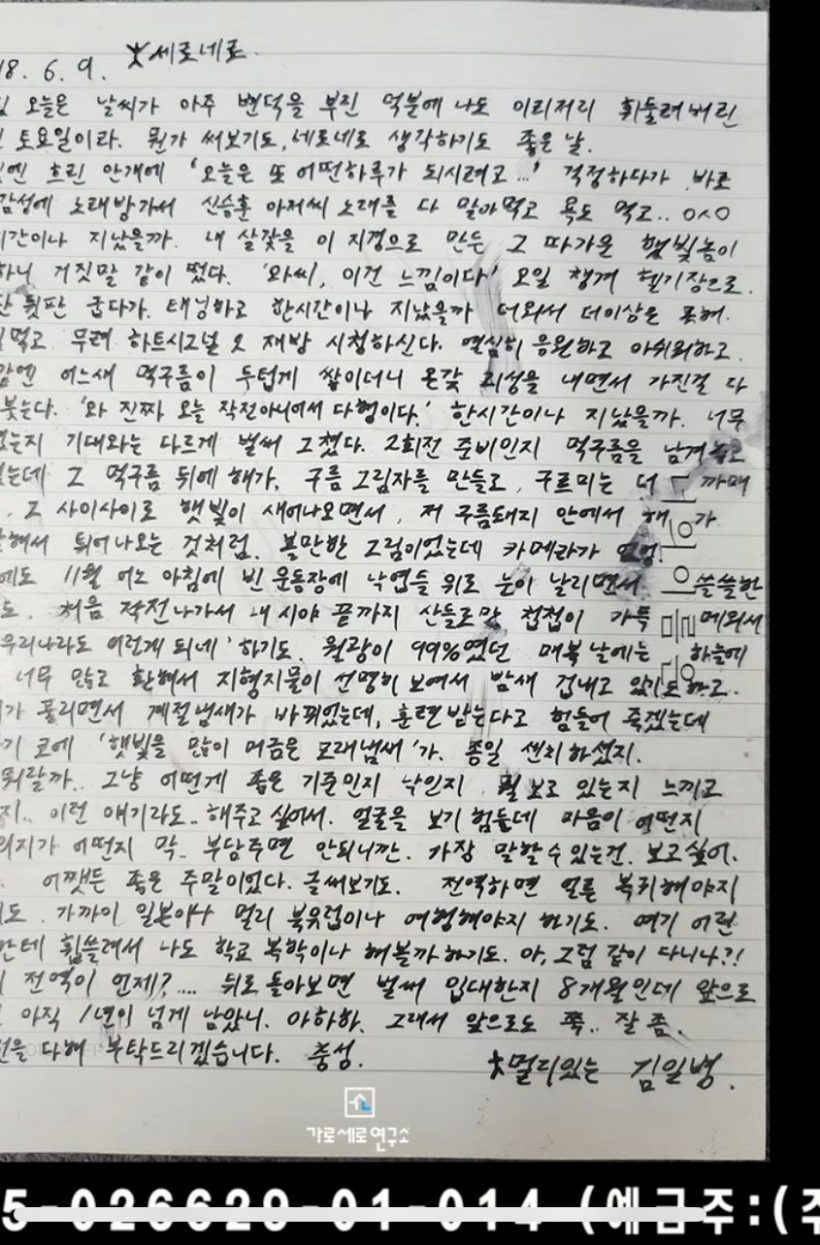 18. 6. 9. 大세로네로.
오늘은 날씨가 아주 변덕을 부린 덕분에 나도 이리저리 휘둘려버린
토요일이라. 뭔가 써보기도, 네로네로 생각하기도 좋은 날.
엔 흐린 안개에 '오늘은 또 어떤하루가 되시려고...' 걱정하다가 바로
감성에 노래방가서 신승훈 아저씨 노래를 다 말아먹고 욕도 먹고.. ㅇㅅㅇ
시간이나 지났을까. 내 살갗을 이 지경으로 만든 그 따가운 햇빛놈이
하니 거짓말 같이 떴다. '와씨, 이건 느낌이다' 오일 챙겨 헬기장으로.
뒷판 굽다가. 태닝하고 한시간이나 지났을까 더워서 더이상은 못해.
먹고 무려 하트시그널 2 재방 시청하신다. 열심히 응원하고 아쉬워하고.
엔 어느새 먹구름이 두텁게 쌓이더니 온갖 괴성을 내면서 가진걸 다
붓는다. '와 진짜 오늘 작전아니어서 다행이다.' 한시간이나 지났을까. 너무
는지 기대와는 다르게 벌써 그쳤다. 2회전 준비인지 먹구름을 남겨놓고
는데 그 먹구름 뒤에 해가. 구름 그림자를 만들고, 구르미는 더 까매
. 그 사이사이로 햇빛이 새어나오면서, 저 구름돼지 안에서 해가
해서 튀어나오는 것처럼. 볼만한 그림이었는데 카메라가
에도 11월 어느 아침에 빈 운동장에 낙엽들 위로 눈이 날리면서 쓸쓸한
도. 처음 작전나가서 내 시야 끝까지 산들로만 첩첩이 가득 메워서
우리나라도 이렇게 되네' 하기도. 월광이 99%였던 매복 날에는 하늘에
너무 많고 환해서 지형지물이 선명히 보여서 밤새 겁내고 있기도하고.
가 풀리면서 계절냄새가 바뀌었는데, 훈련받는다고 힘들어 죽겠는데
기 코에 '햇빛을 많이 머금은 모래냄새'가. 종일 센치하셨지.
뭐랄까.. 그냥 어떤게 좋은 기준인지 낙인지 뭘 보고 있는지 느끼고
지.. 이런 얘기라도.. 해주고 싶어서. 얼굴을 보기 힘들데 마음이 어떤지
의지가 어떤지 막.. 부담주면 안되니깐. 가장 말할수있는건. 보고싶어.
. 어쨋든 좋은 주말이었다. 글써보기도. 전역하면 얼른 복귀해야지
도. 가까이 일본이나 멀리 북유럽이나 여행해야지 하기도. 여기 어린
한테 휩쓸려서 나도 학교 복학이나 해볼까 하기도. 아, 그럼 같이 다니나?!
전역이 언제?.... 뒤로 돌아보면 벌써 입대한지 8개월인데 앞으로
아직 1년이 넘게 남았니. 아하하. 그래서 앞으로도 쭉.. 잘 좀.
을 다해 부탁드리겠습니다. 충성.
大멀리있는 김일병.
가로세로연구소
5-026629-01-014 (예금주:(주